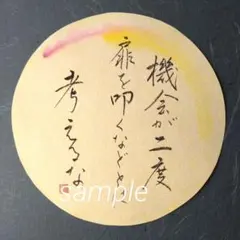 機会が二度
扉を叩くなどとは
考えるな
sample